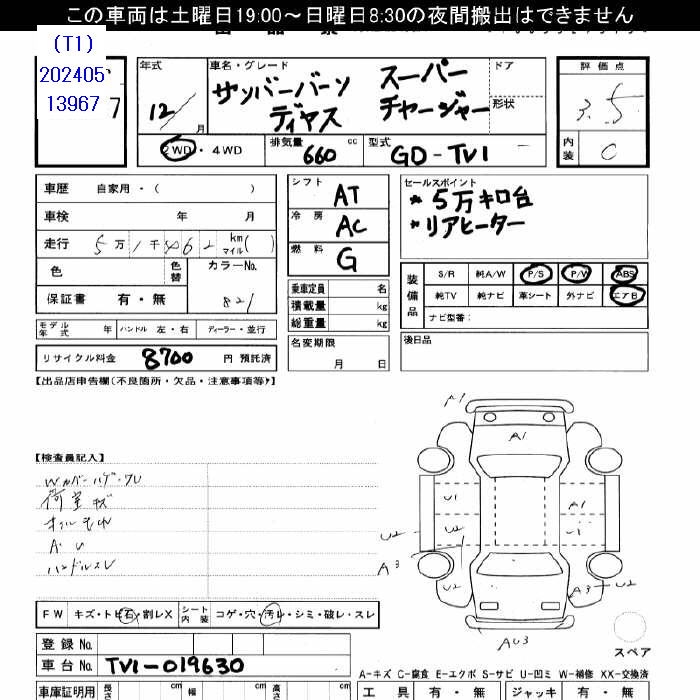 この車両は土曜日19:00～日曜日8:30の夜間搬出はできません
(T1)
202405
13967
7
年式
12
月
車名・グレード
サンバーバン スーパー
ディヤス チャージャー
ドア
形状
2WD・4WD
排気量
660 cc
型式
GD-TV1
評価点
3.5
内装
C
車歴 自家用・( )
車検 年 月
走行 5万1千462 km マイル( )
色
色替
カラーNo.
821
保証書 有・無
モデル年式 年 ハンドル 左・右 ディーラー・並行
リサイクル料金 8700 円 預託済
シフト AT
冷房 AC
燃料 G
乗車定員 名
積載量 kg
総重量 kg
名変期限
月 日
セールスポイント
*5万キロ台
*リアヒーター
装備品
S/R 純A/W P/S P/W ABS
純TV 純ナビ 革シート 外ナビ エアB
ナビ型番:
後日品
【出品店申告欄(不良箇所・欠品・注意事項等)】
【検査員記入】
荷室キズ
オイルもれ
A・U
ハンドルスレ
FW キズ・トビ石・割レX シート内装 コゲ・穴・汚レ・シミ・破レ・スレ
登録No.
車台No. TV1-019630
車庫証明用 長さ cm 幅 cm 高さ cm
A1
A1
U1
A1
U2
U2
U1
A3
U2
A3
U2
AU3
スペア
A-キズ C-腐食 E-エクボ S-サビ U-凹ミ W-補修 XX-交換済
工具 有・無 ジャッキ 有・無